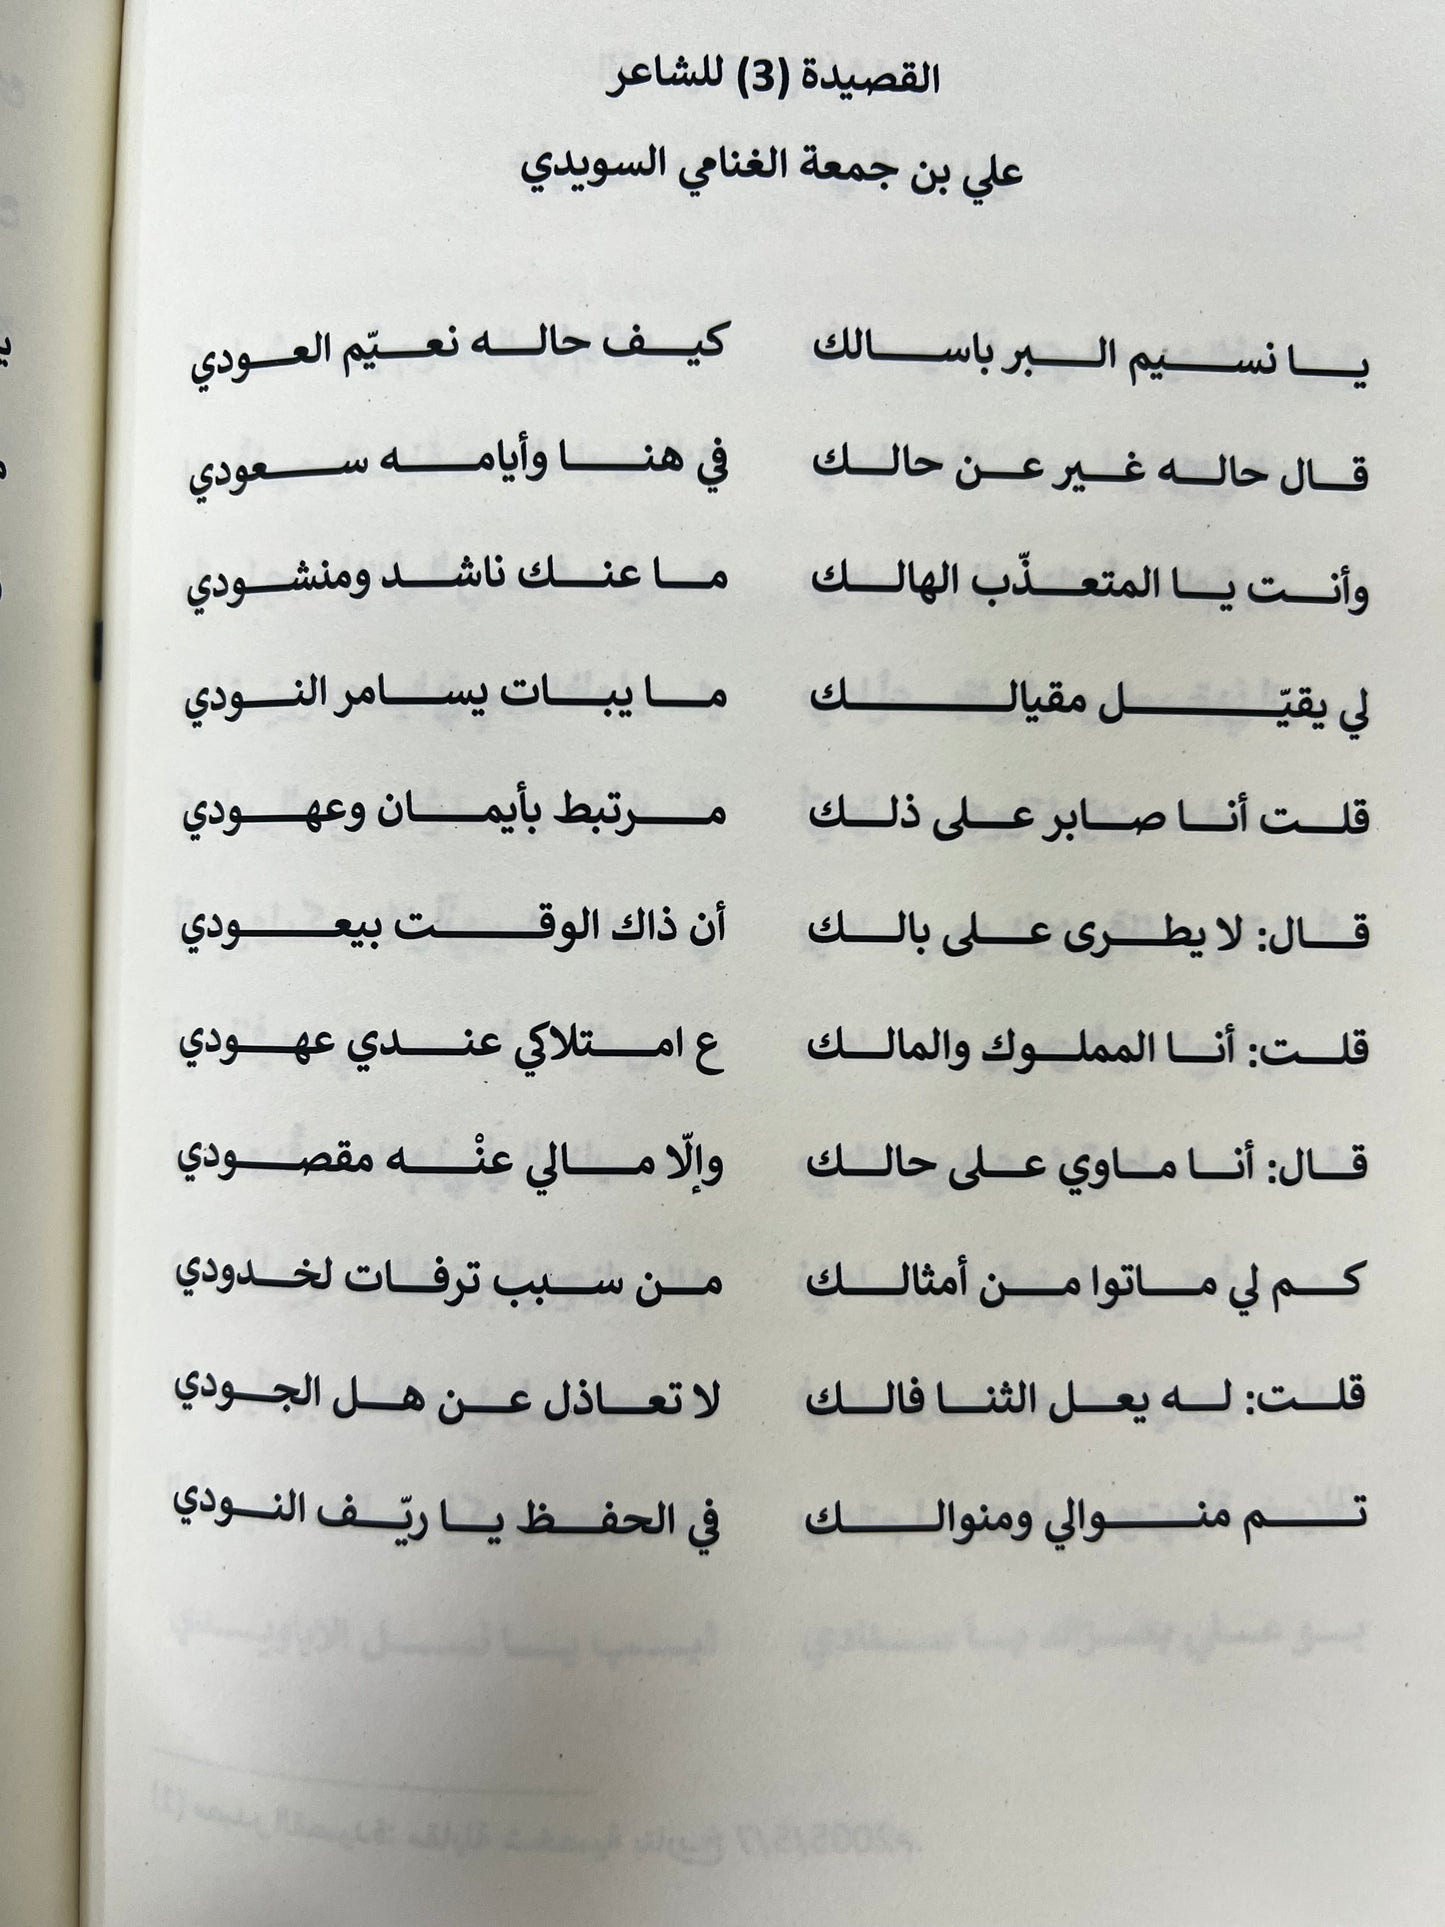 القصيدة (3) للشاعر
علي بن جمعة الغنامي السويدي
يا نسيم البر باسالك كيف حاله نعيّم العودي
قال حاله غير عن حالك في هنا وأيامه سعودي
وأنت يا المتعذّب الهالك ما عنك ناشد ومنشودي
لي يقيّل مقيالك ما يبات يسامر النودي
قلت أنا صابر على ذلك مرتبط بأيمان وعهودي
قال: لا يطرى على بالك أن ذاك الوقت بيعودي
قلت: أنا المملوك والمالك ع امتلاكي عندي عهودي
قال: أنا ماوي على حالك وإلّا مالي عنْه مقصودي
كم لي ماتوا من أمثالك من سبب ترفات لخدودي
قلت: له يعل الثنا فالك لا تعاذل عن هل الجودي
تم منوالي ومنوالك في الحفظ يا ريّف النودي